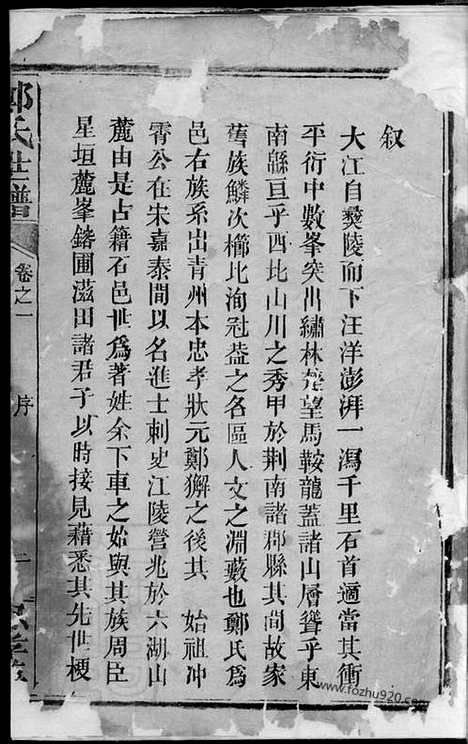 叙
大江自彝陵而下汪洋澎湃一瀉千里石首適當其衝
平衍中數峯突出繡林楚望馬鞍龍蓋諸山層聳乎東
南緜亘乎西北山川之秀甲於荆南諸郡縣其間故家
舊族鱗次櫛比洵冠蓋之名區人文之淵藪也鄭氏爲
邑右族系出青州本忠孝狀元鄭獬之後其 始祖冲
霄公在宋嘉泰間以名進士刺史江陵營兆於六湖山
麓由是占籍石邑世爲著姓余下車之始與其族周臣
星垣麓峯鎔圃滋田諸君子以時接見藉悉其先世梗
氏世譜
卷之一
序
一
www.fozhu920.com